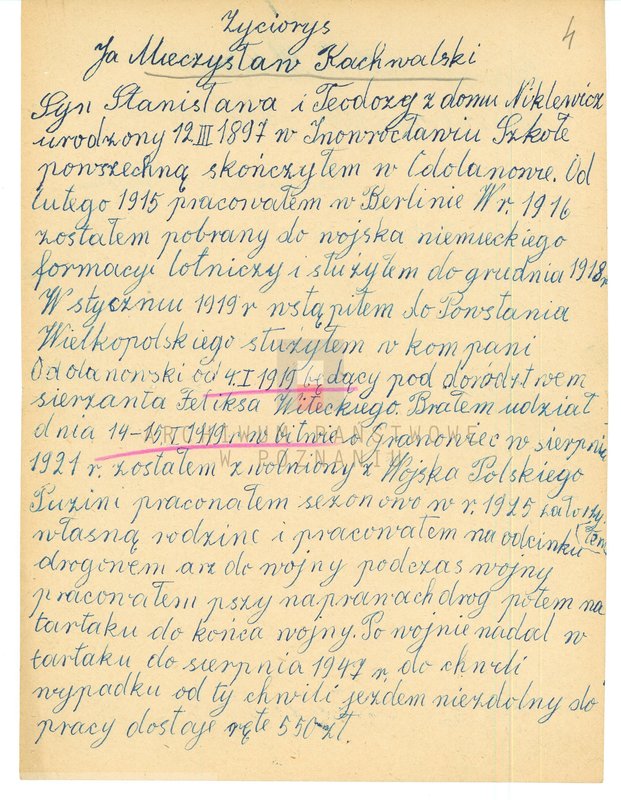 4
Życiorys
Ja Mieczysław Kachwalski
Syn Stanisława i Teodozy z domu Niklewicz
urodzony 12 III 1897 w Inowrocławiu Szkołe
powszechną skończyłem w Odolanowie. Od
lutego 1915 pracowałem w Berlinie W r. 1916
zostałem pobrany do wojska niemieckiego
formacyi lotniczy i służyłem do grudnia 1918 r
W styczniu 1919 r wstąpiłem do Powstania
Wielkopolskiego służyłem w kompani
Odolanowski od 4.I 1919 będący pod dowodztwem
sierzanta Feliksa Witeckiego. Brałem udział
dnia 14-15 I 1919 r w bitwie o Granowiec w sierpniu
1921 r. zostałem zwolniony z Wojska Polskiego
ARCHIWUM PAŃSTWOWE
W POZNANIU
pracowałem sezonowo w r. 1925 założyłem
własną rodzine i pracowałem na odcinku
drogowem aż do wojny podczas wojny
pracowałem pszy naprawach drog potem na
tartaku do końca wojny. Po wojnie nadal w
tartaku do sierpnia 1947 r. do chwili
wypadku od ty chwili jezdem niezdolny do
pracy dostaje ręte 550 zł.